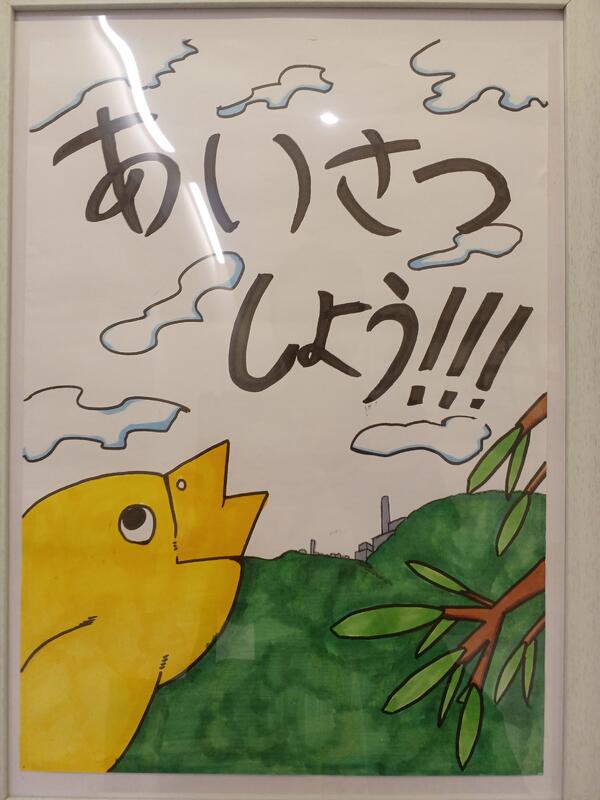 あいさつ
しよう!!!